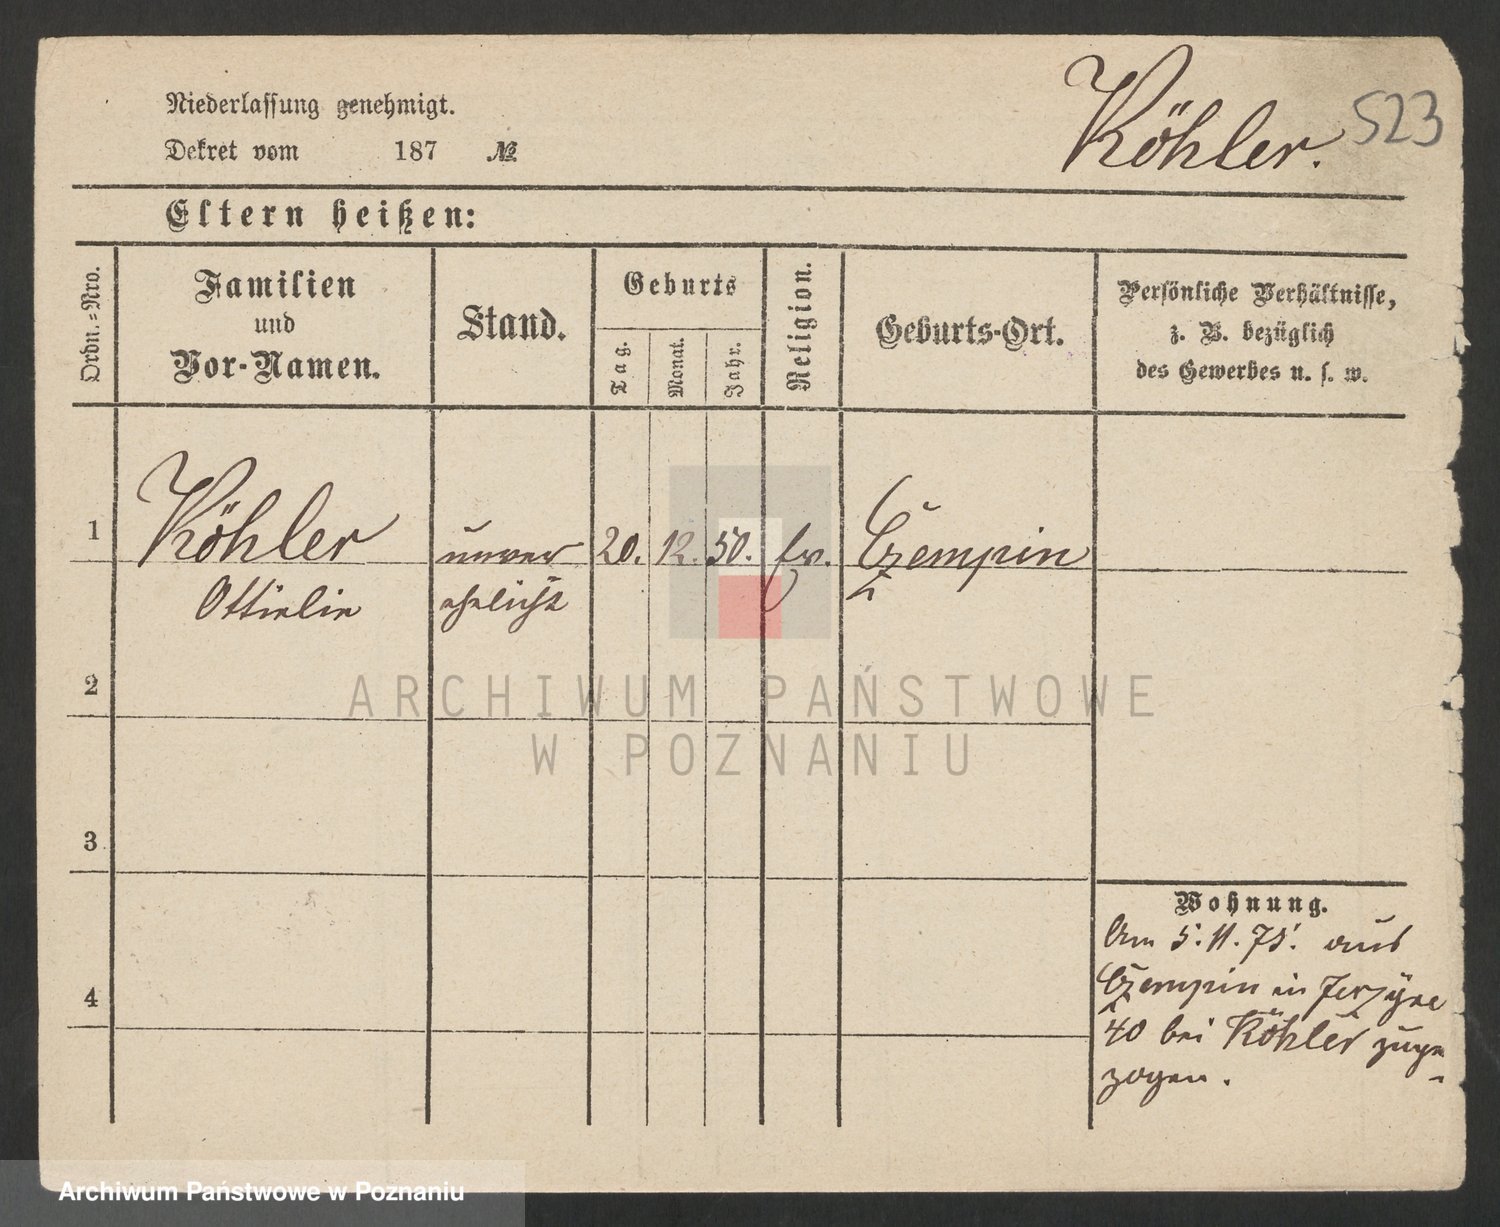 Köhler. 523
Niederlassung genehmigt.
Dekret vom 187 №
Eltern heißen:
Ordn.=Nro.
Familien
und
Vor-Namen.
Stand.
Geburts
Tag.
Monat.
Jahr.
Religion.
Geburts-Ort.
Persönliche Verhältnisse,
z. B. bezüglich
des Gewerbes u. s. w.
1 Köhler unver 20. 12. 50. Czempin
Ottielie ehelicht
2
3
4
Wohnung.
Am 5.11.75. aus
Czempin in
40 bei Köhler zuge
zogen.
ARCHIWUM PAŃSTWOWE
W POZNANIU
Archiwum Państwowe w Poznaniu